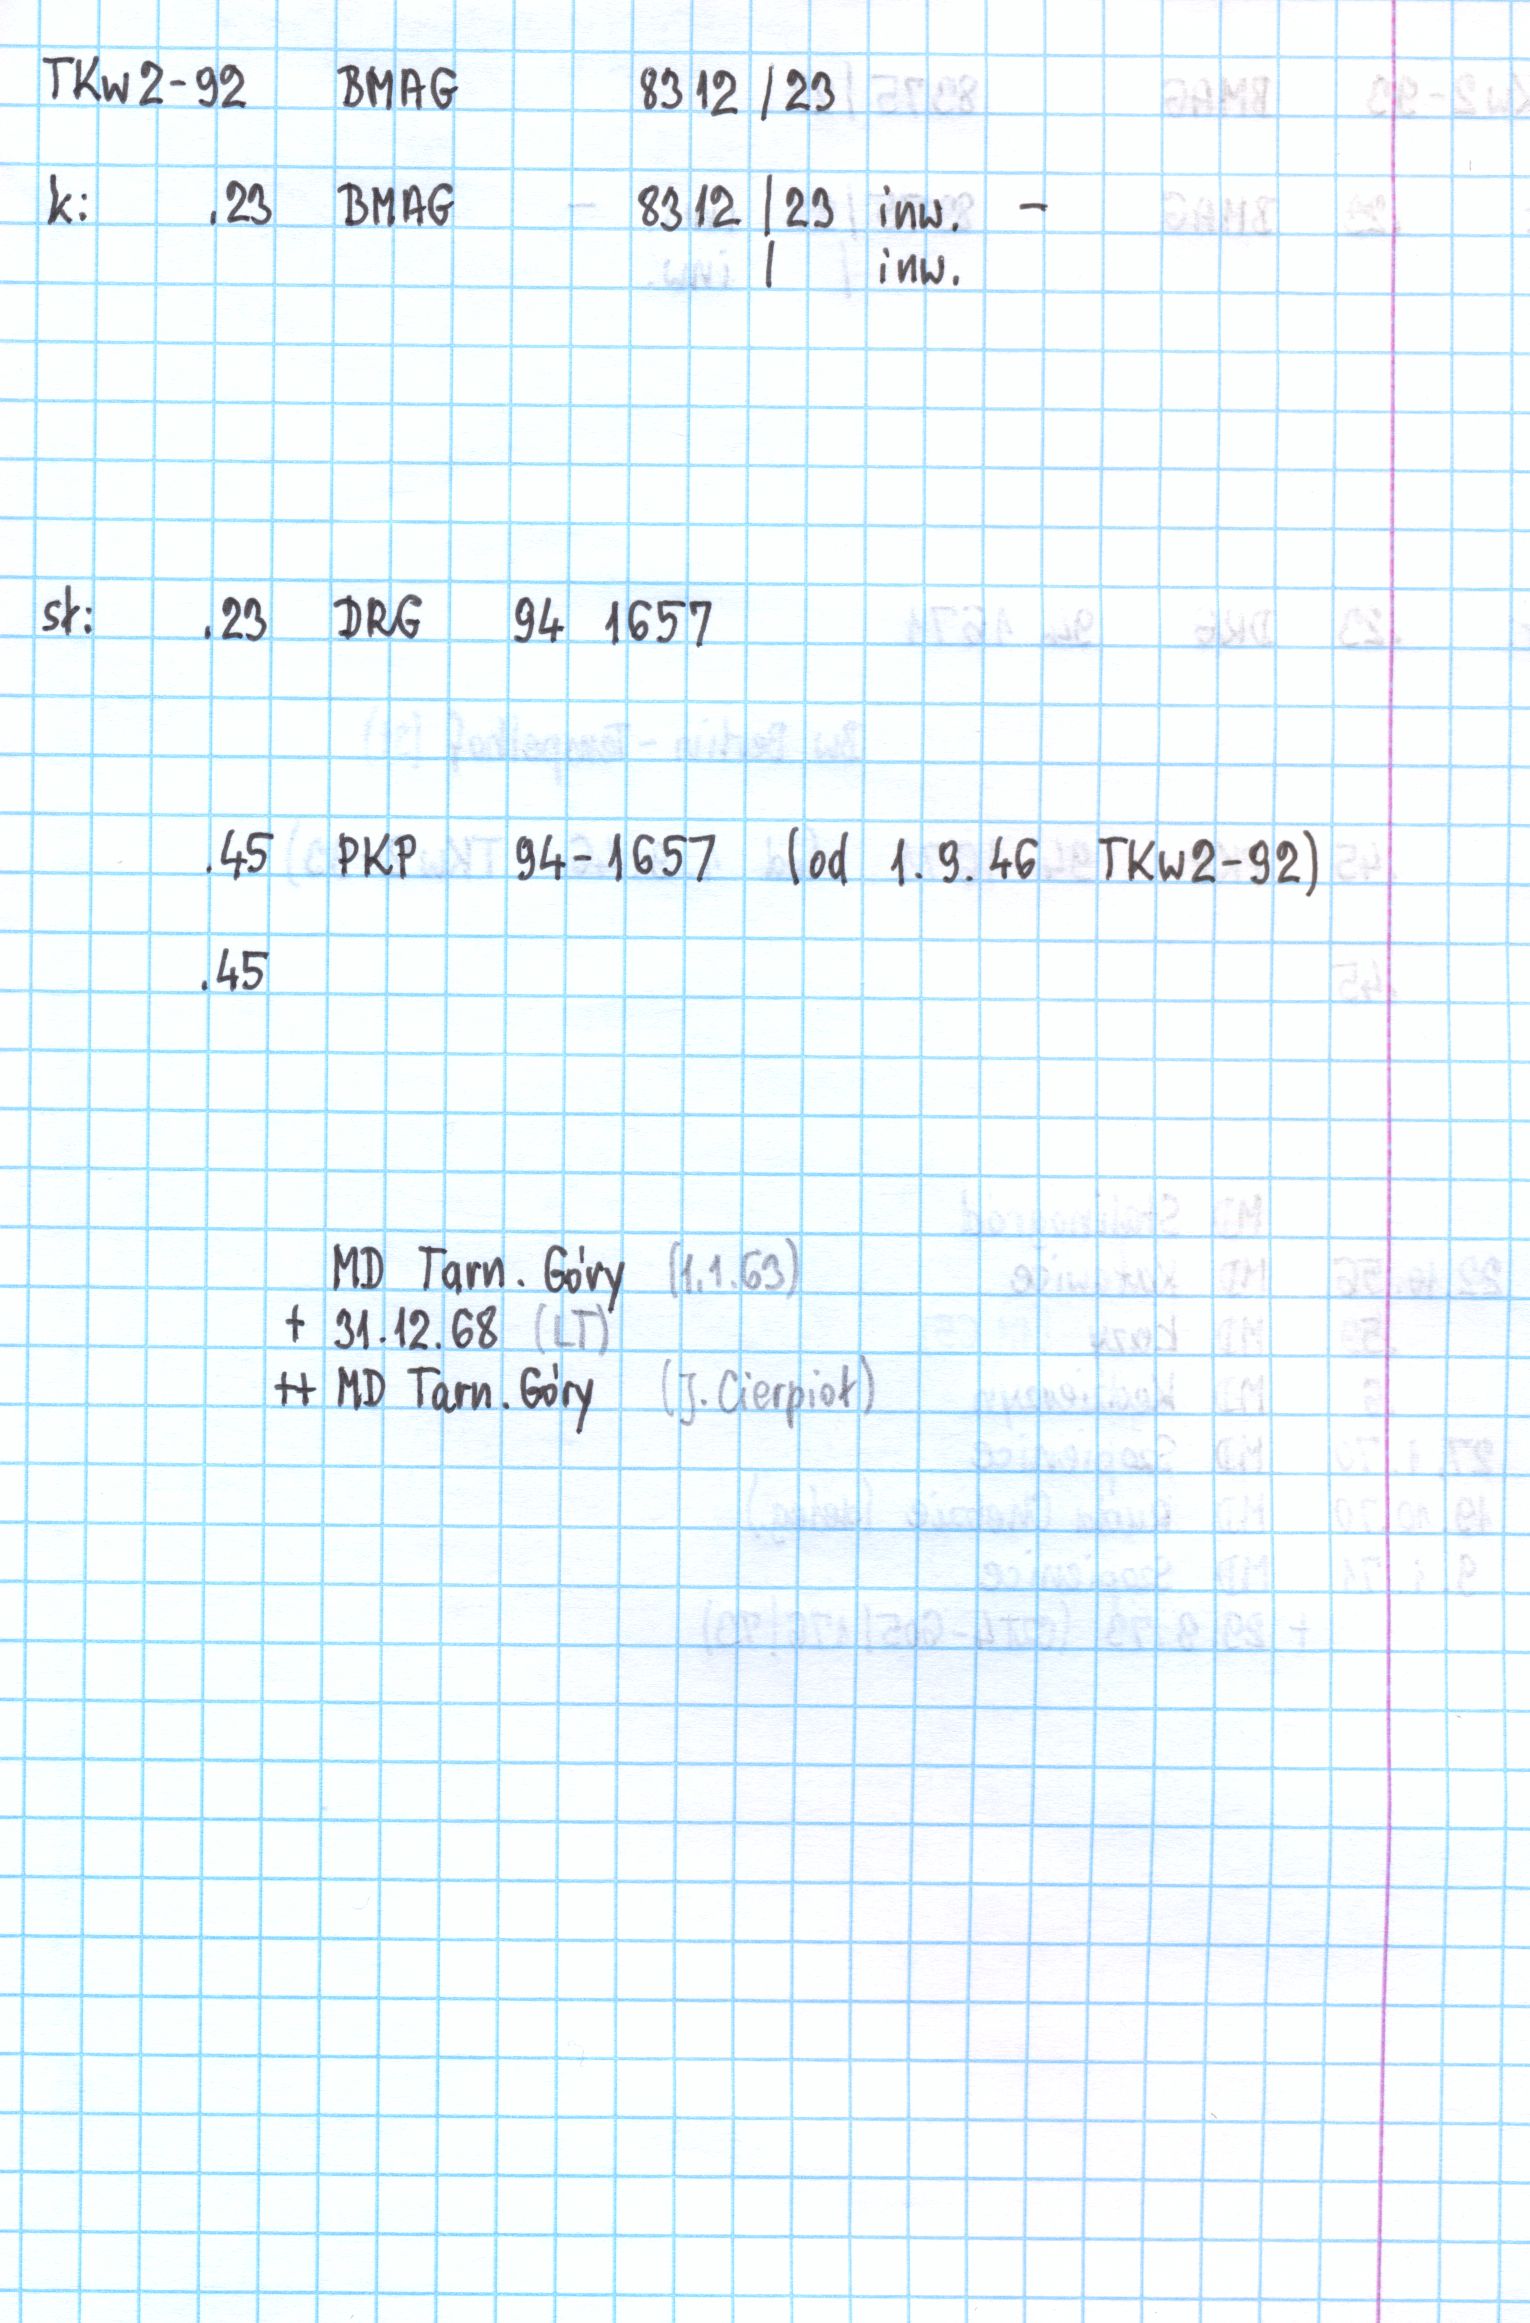 TKw2-92 BMAG 8312/23
k: .23 BMAG - 8312/23 inw. -
/ inw.
st: .23 DRG 94 1657
.45 PKP 94-1657 (od 1.9.46 TKw2-92)
.45
MD Tarn. Góry (1.1.63)
+ 31.12.68 (LT)
++ MD Tarn. Góry (J. Cierpioł)